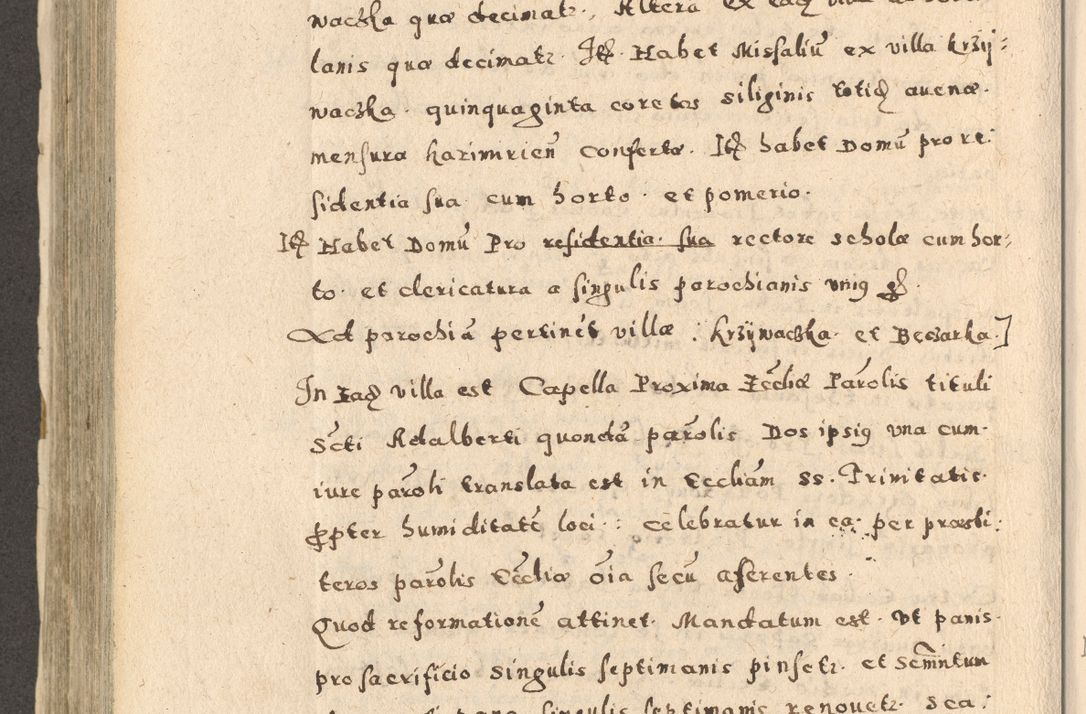 waczka quæ decimatr, Altera ex eadē villa
lanis quæ decimatr. Itē. Habet Missaliū ex villa krzÿ⸗
waczka. quinquaginta coretos siliginis totidē auenæ.
mensuræ harimrien̄ confertæ. Itē habet Domū pro re⸗
sidentia sua cum horto. et pomerio.
Itē Habet Domū Pro residentia. sua rectore scholæ cum hor⸗
to. et clericatura a singulis parochianis vniq gr̄.
Ad parochiā pertinēt villæ : krzÿwaczka. et Bęczarka.]
In Eadē villa est Capella Proxima Eccliæ Parolis tituli
Scti Adalberti quondā parolis Dos ipsiq vna cum.
iure paroli translata est in Eccliam SS. Trinitatis.
Ppter humiditatē loci : celebratur in ea. per præsbi⸗
teros parolis Eccliæ oīa secū aferentes.
Quod reformationē attinet. Mandatum est. vt panis.
pro sacrificio singulis septimanis pinsetr. et Semnntum
singulis septimanis renouetr. Sca⸗